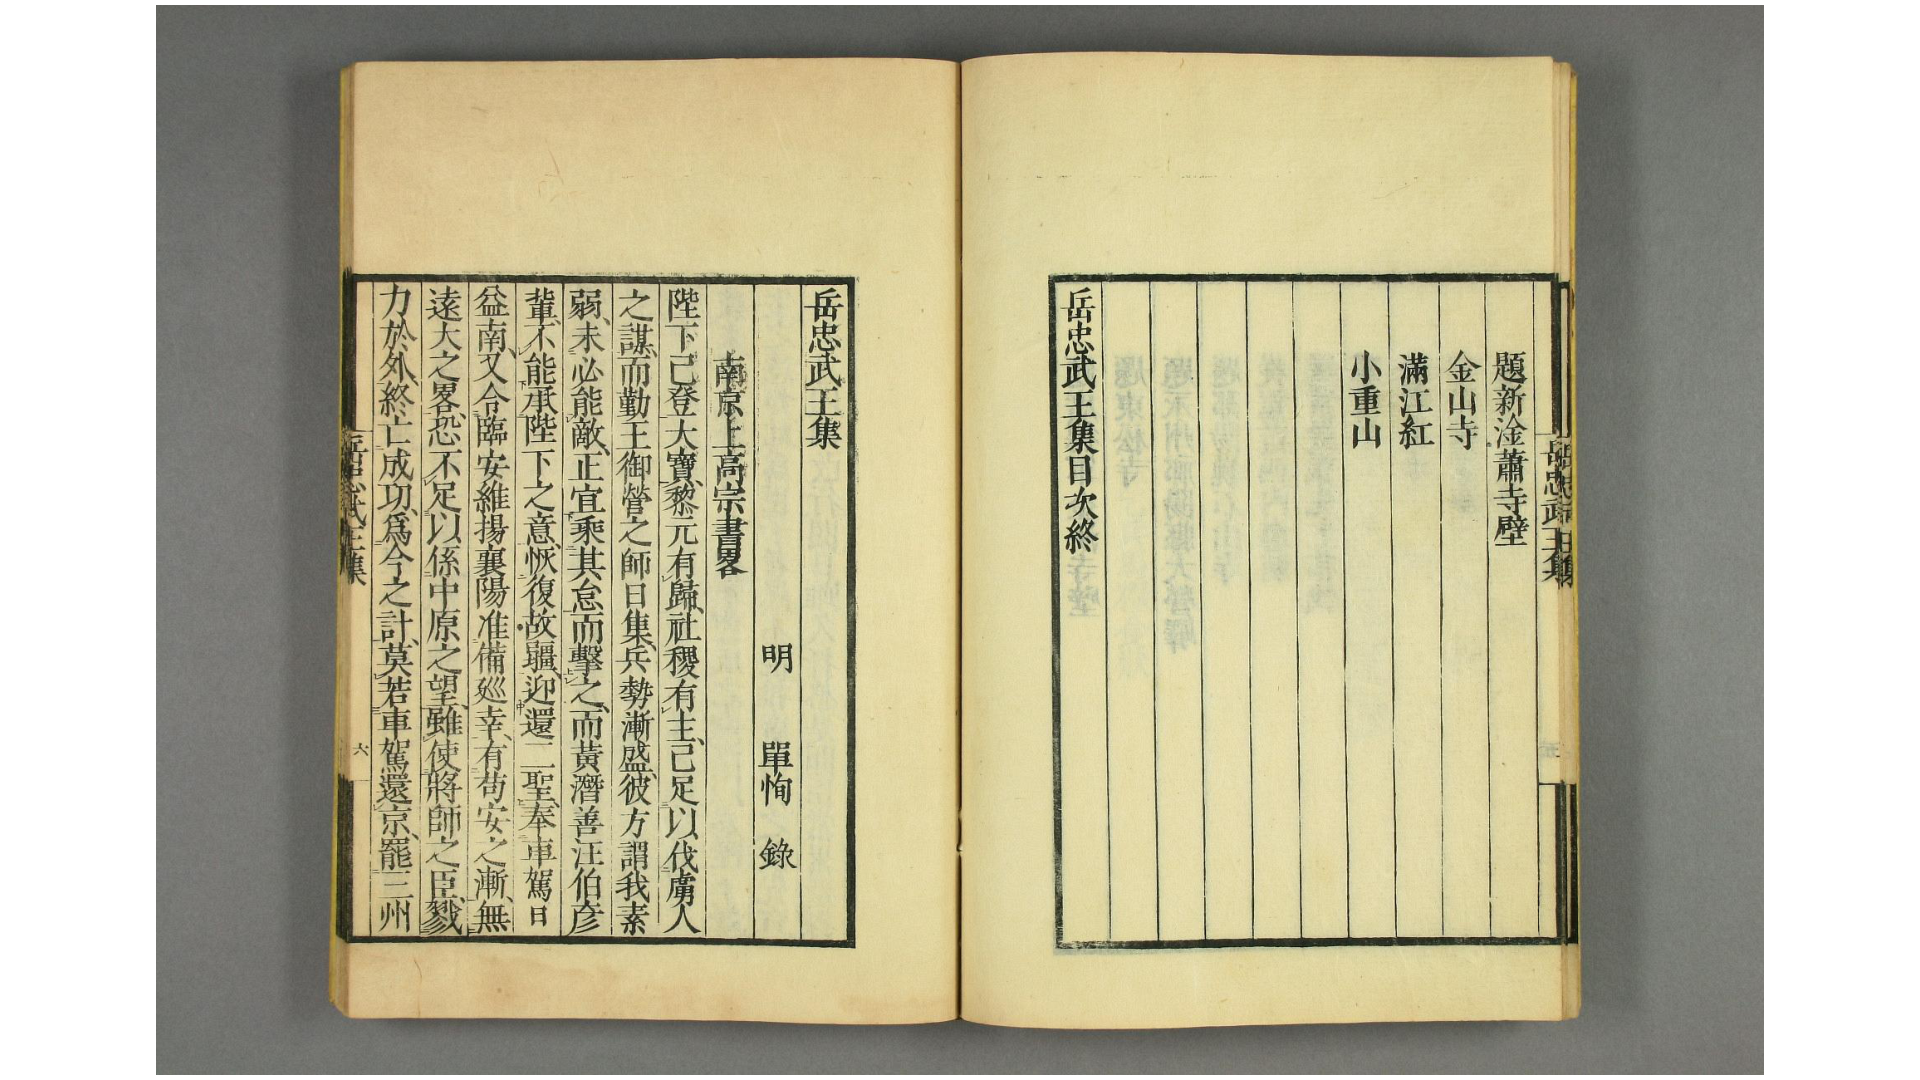 題新淦蕭寺壁
金山寺
滿江紅
小重山
岳忠武王集目次終
岳忠武王集
岳忠武王集
明 單恂 錄
南京上高宗書畧
陛下已登大寶、黎元有歸、社稷有主、已足以伐虜人
之謀、而勤王御營之師日集、兵勢漸盛、彼方謂我素
弱、未必能敵、正宜乘其怠而擊之、而黃潛善汪伯彥
輩、不能承陛下之意、恢復故疆、迎還二聖、奉車駕日
益南、又令臨安維揚襄陽准備廵幸、有苟安之漸、無
遠大之畧、恐不足以係中原之望、雖使將師之臣、戮
力於外、終亡成功、爲今之計、莫若車駕還京、罷三州
岳忠武王集
六